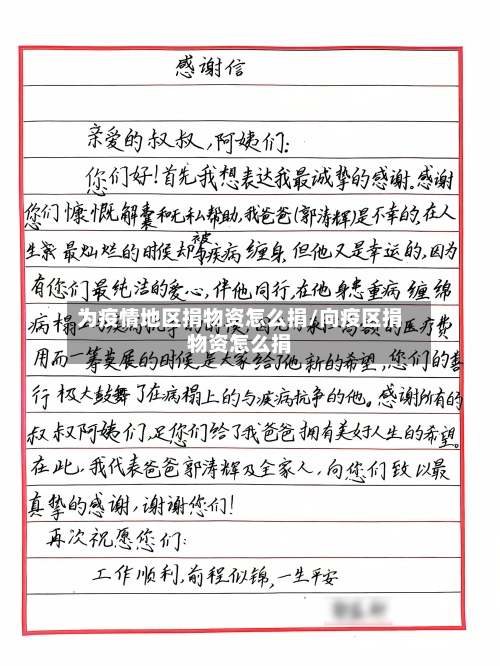 感谢信
亲爱的叔叔，阿姨们：
您们好！首先我想表达我最诚挚的感谢。感谢
您们慷慨解囊和无私帮助，我爸爸（郭涛辉）是不幸的，在人
生 最灿烂的时候却被疾病缠身，但他又是幸运的，因为
有您们最纯洁的爱心，伴他同行，在他身患重病缠绵
为疫情地区捐物资怎么捐/向疫区捐
物资怎么捐
病榻 医疗费
用而一筹莫展的时候是大家给了他新的希望，您们的善
行极大鼓舞了在病榻上的与疾病抗争的他。感谢所有的
叔叔阿姨们，是您们给了我爸爸拥有美好人生的希望。
在此，我代表爸爸郭涛辉及全家人，向您们致以最
真挚的感谢，谢谢您们！
再次祝愿您们：
工作顺利，前程似锦，一生平安